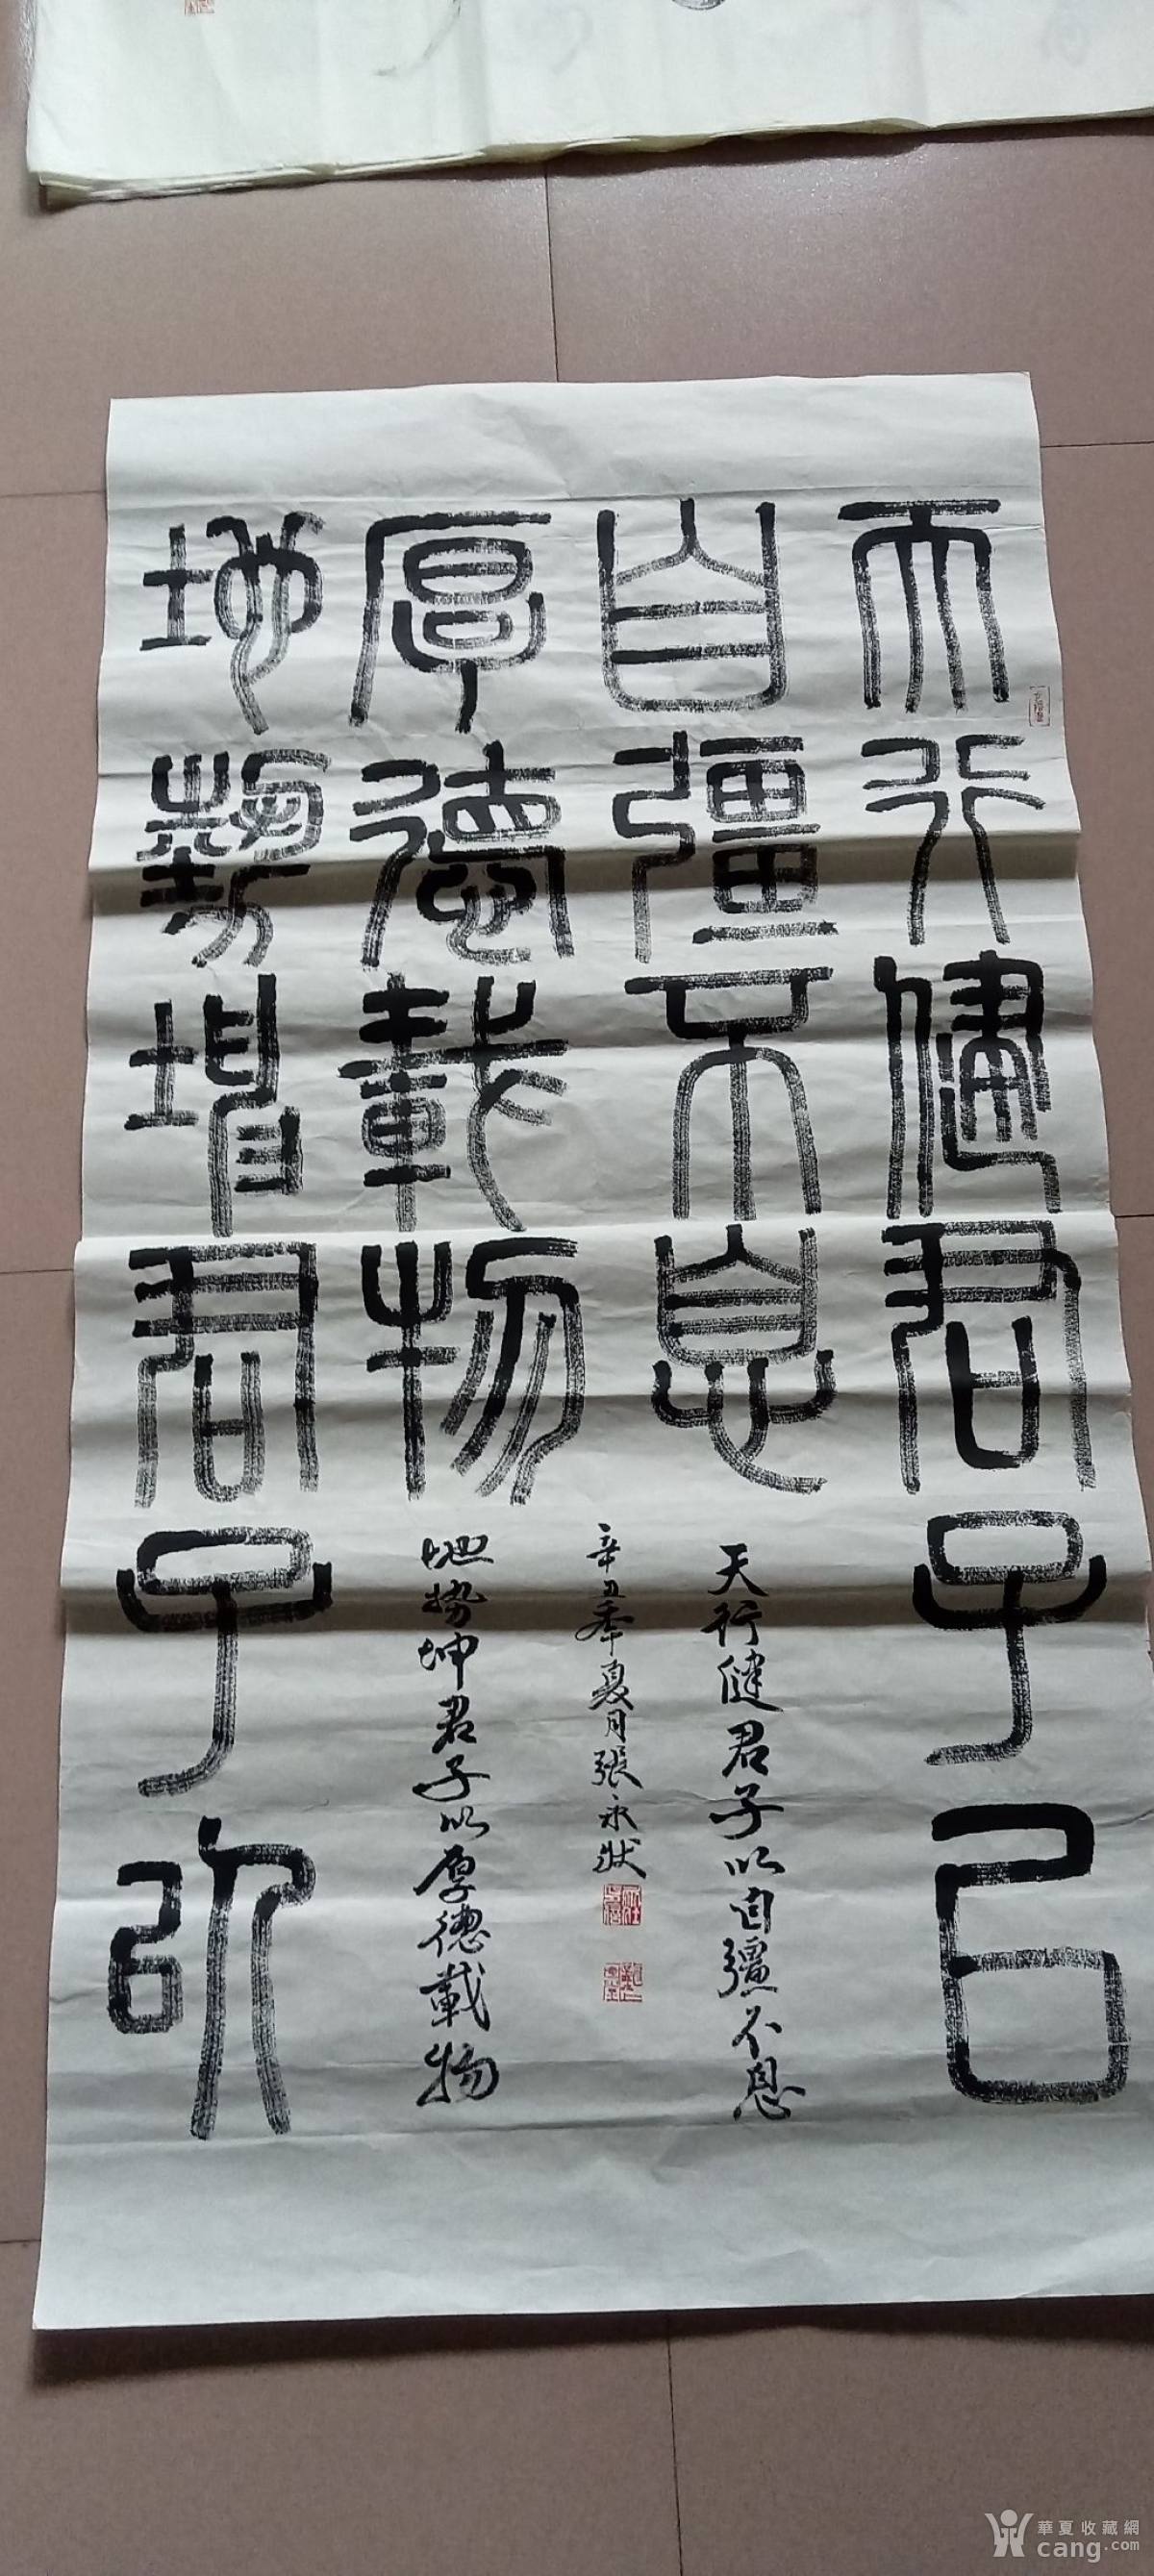 天行健君子㠯
自彊不息
地勢坤君子以
厚德載物
天行健君子以自彊不息
地勢坤君子以厚德載物
辛丑年夏月張永狀
華夏收藏網
cang.com